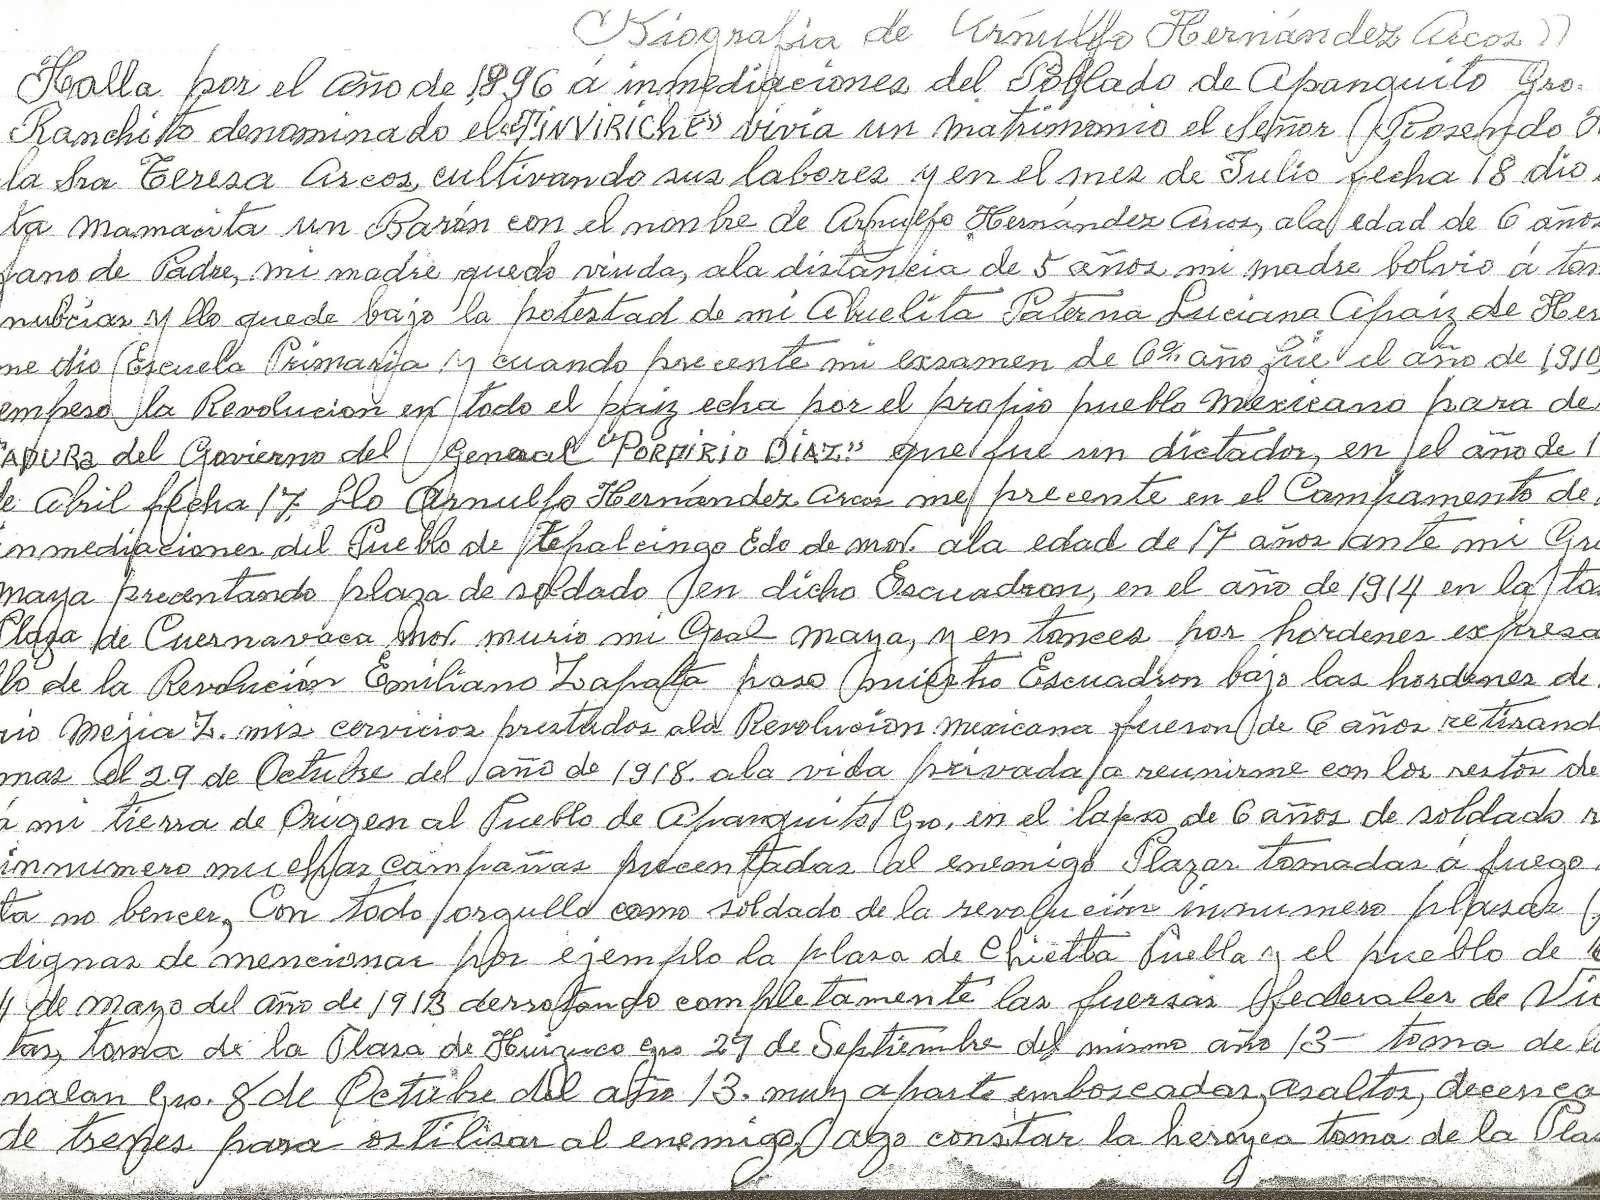 Biografia de Arnulfo Hernández Arcos))
Halla por el Año de 1896 á inmediaciones del Poblado de Apanguito Gro.
Ranchito denominado el "TINVIRICHE" vivia un matrimonio el Señor (Rosendo H
la Sra Teresa Arcos, cultivando sus labores y en el mes de Julio fecha 18 dio
ta mamacita un Barón con el nonbre de Arnulfo Hernández Arcos, ala edad de 6 años
fano de Padre, mi madre quedo viuda, ala distáncia de 5 años mi madre bolvio á tom
nubcias y llo quede bajo la potestad de mi Abuelita Paterna Luciana Apaiz de Her
me dio Escuela Primaria y cuando precente mi exsamen de 6º. año fue el año de 1910,
empeso la Revolucion en todo el paiz echa por el propio pueblo Mexicano para de
TADURA del Govierno del General "PORFIRIO DIAZ" que fue un dictador, en el año de 1
de Abril fecha 17. Llo Arnulfo Hernández Arcos me precente en el Campamento de
inmediaciones del Pueblo de Tepalcingo Edo de mor. ala edad de 17 años ante mi Gra
maya precentando plaza de soldado en dicho Escuadron, en el año de 1914 en la to
Plaza de Cuernavaca Mor. murio mi Gral maya, y en tonces por hordenes expresa
llo de la Revolución Emiliano Zapata paso nuestro Escuadron bajo las hordenes de
rio Mejia Z. mis cervicios prestados ala Revolucion Mexicana fueron de 6 años retirand
mas el 29 de Octubre del año de 1918. ala vida privada a reunirme con los restos de
á mi tierra de Origen al Pueblo de Apanguito Gro. en el lapso de 6 años de soldado r
innumero muchas campañas precentadas al enemigo Plazas tomadas á fuego
ta no bencer, Con todo orgullo como soldado de la revolución innumero plasas
dignas de mencionar por ejemplo la plasa de Chietla Puebla y el pueblo de
4 de Mayo del año de 1913 derrotando completamente las fuersas federales de Vic
tas, toma de la Plasa de Huizuco Gro 27 de Septiembre del mismo año 13- toma de la
nalan Gro. 8 de Octubre del año 13. muy aparte emboscadas, asaltos, decenca
de trenes para ostilisar al enemigo, ago constar la heroyca toma de la Plas